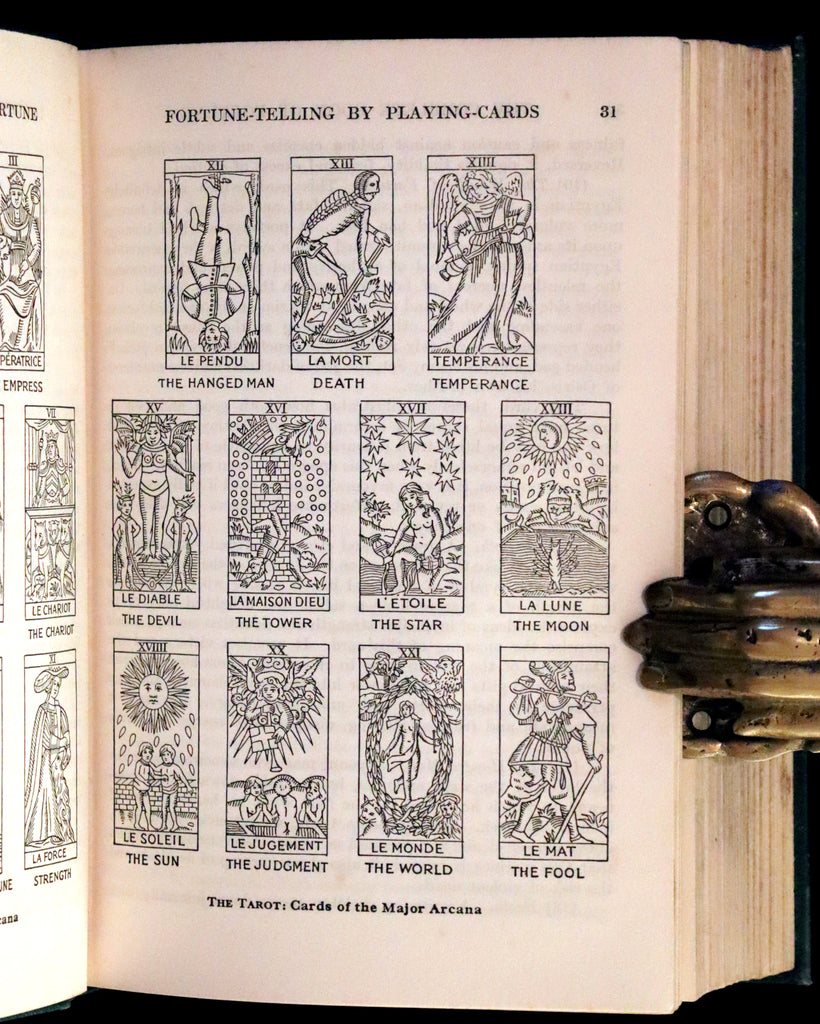 RTUNE
III
PÉRATRICE
EMPRESS
VII
LE CHARIOT
THE CHARIOT
XI
LA FORCE
STRENGTH
UNE
cana
FORTUNE-TELLING BY PLAYING-CARDS 31
XII XIII XIIII
LE PENDU LA MORT TEMPÉRANCE
THE HANGED MAN DEATH TEMPERANCE
XV XVI XVII XVIII
LE DIABLE LA MAISON DIEU L'ETOILE LA LUNE
THE DEVIL THE TOWER THE STAR THE MOON
XVIIII XX XXI
LE SOLEIL LE JUGEMENT LE MONDE LE MAT
THE SUN THE JUDGMENT THE WORLD THE FOOL
THE TAROT: Cards of the Major Arcana